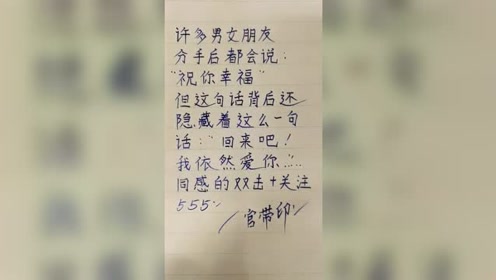 许多男女朋友
分手后都会说:
"祝你幸福"
但这句话背后还
隐藏着这么一句
话:"回来吧!
我依然爱你……
同感的双击+关注
555…
官带印